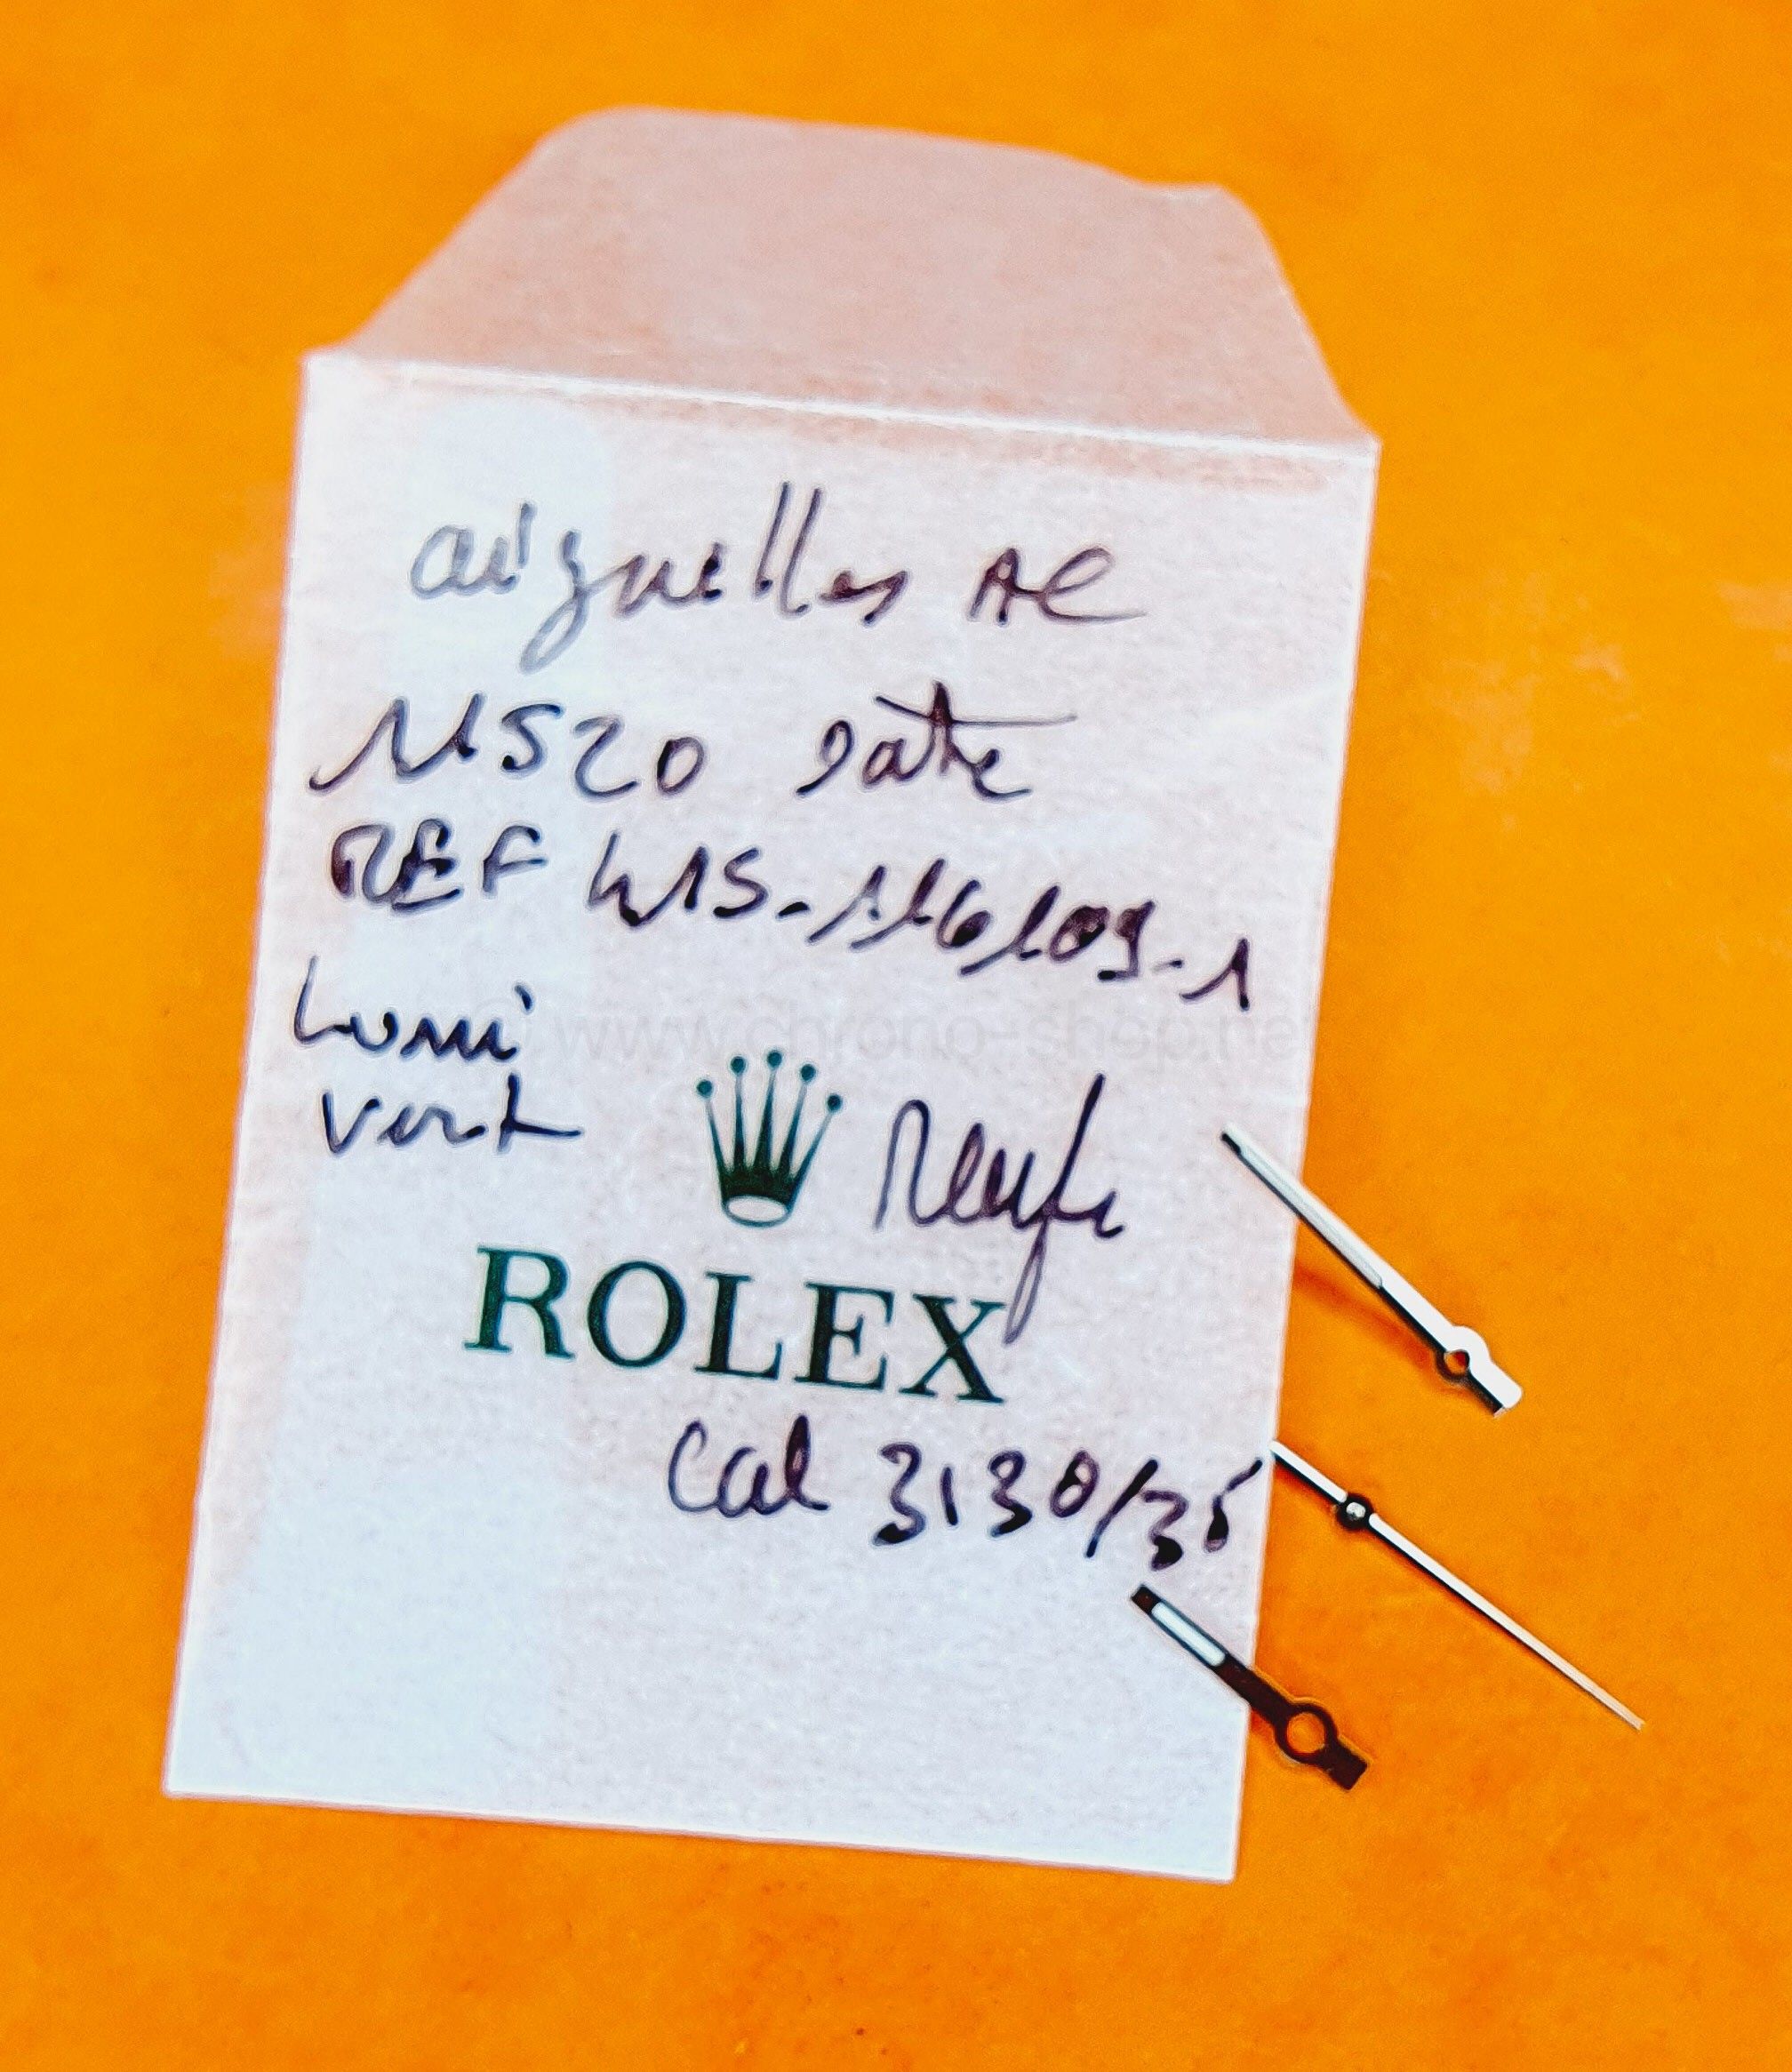 aiguilles AC
11520 Date
REF 415-116109-1
Lumi
vert
Neufs
ROLEX
Cal 3130/35
www.chrono-shop.ne